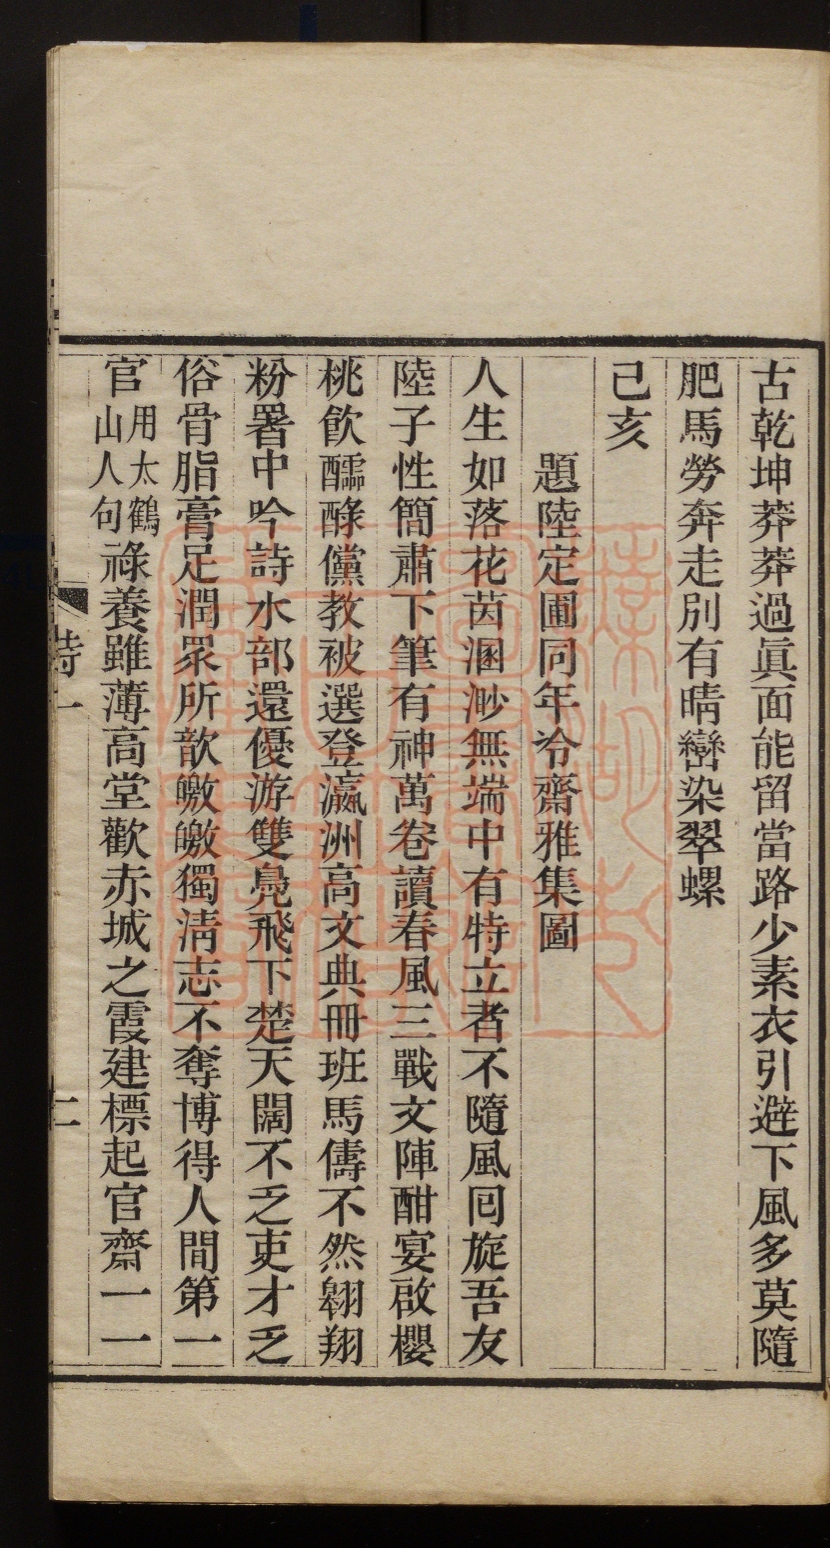 古乾坤莽莽過眞面能留當路少素衣引避下風多莫隨
肥馬勞奔走別有晴巒染翠螺
己亥
題陸定圃同年冷齋雅集圖
人生如落花茵溷渺無端中有特立者不隨風囘旋吾友
陸子性簡肅下筆有神萬卷讀春風三戰文陣酣宴啟櫻
桃飮醹醁儻教被選登瀛洲高文典冊班馬儔不然翱翔
粉署中吟詩水部還優游雙鳧飛下楚天闊不乏吏才乏
俗骨脂膏足潤眾所歆皦皦獨淸志不奪博得人間第一
官用太鶴山人句祿養雖薄高堂歡赤城之霞建標起官齋一一
詩一
二